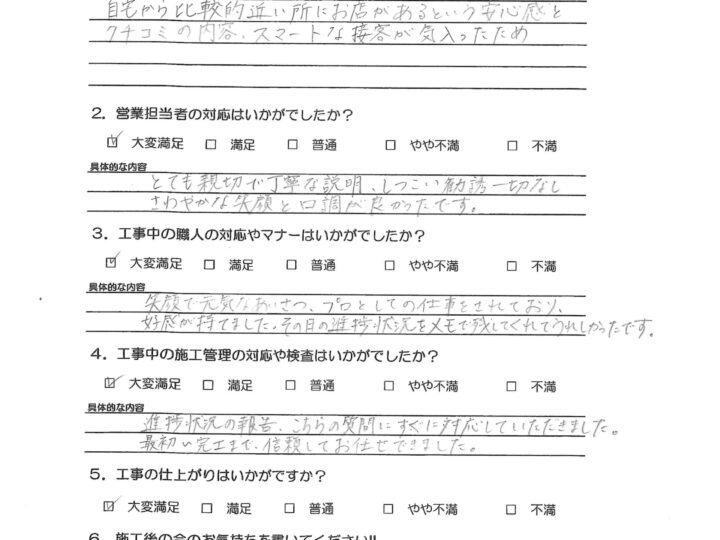 自宅から比較的近い所にお店があるという安心感と
クチコミの内容、スマートな接客が気入ったため
2. 営業担当者の対応はいかがでしたか？
☑ 大変満足 □ 満足 □ 普通 □ やや不満 □ 不満
具体的な内容
とても親切で丁寧な説明、しつこい勧誘一切なし
さわやかな笑顔と口調が良かったです。
3. 工事中の職人の対応やマナーはいかがでしたか？
☑ 大変満足 □ 満足 □ 普通 □ やや不満 □ 不満
具体的な内容
笑顔で元気なあいさつ、プロとしての仕事をされており、
好感が持てました。その日の進捗状況をメモで残してくれてうれしかったです。
4. 工事中の施工管理の対応や検査はいかがでしたか？
☑ 大変満足 □ 満足 □ 普通 □ やや不満 □ 不満
具体的な内容
進捗状況の報告、こちらの質問にすぐに対応していただきました。
最初〜完工まで、信頼してお任せできました。
5. 工事の仕上がりはいかがですか？
☑ 大変満足 □ 満足 □ 普通 □ やや不満 □ 不満
6. 施工後の今のお気持ちを書いてください!!